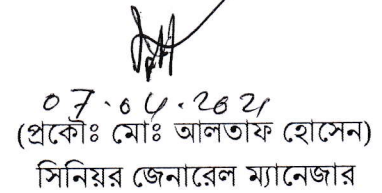 07.04.2021
(প্রকৌঃ মোঃ আলতাফ হোসেন)
সিনিয়র জেনারেল ম্যানেজার